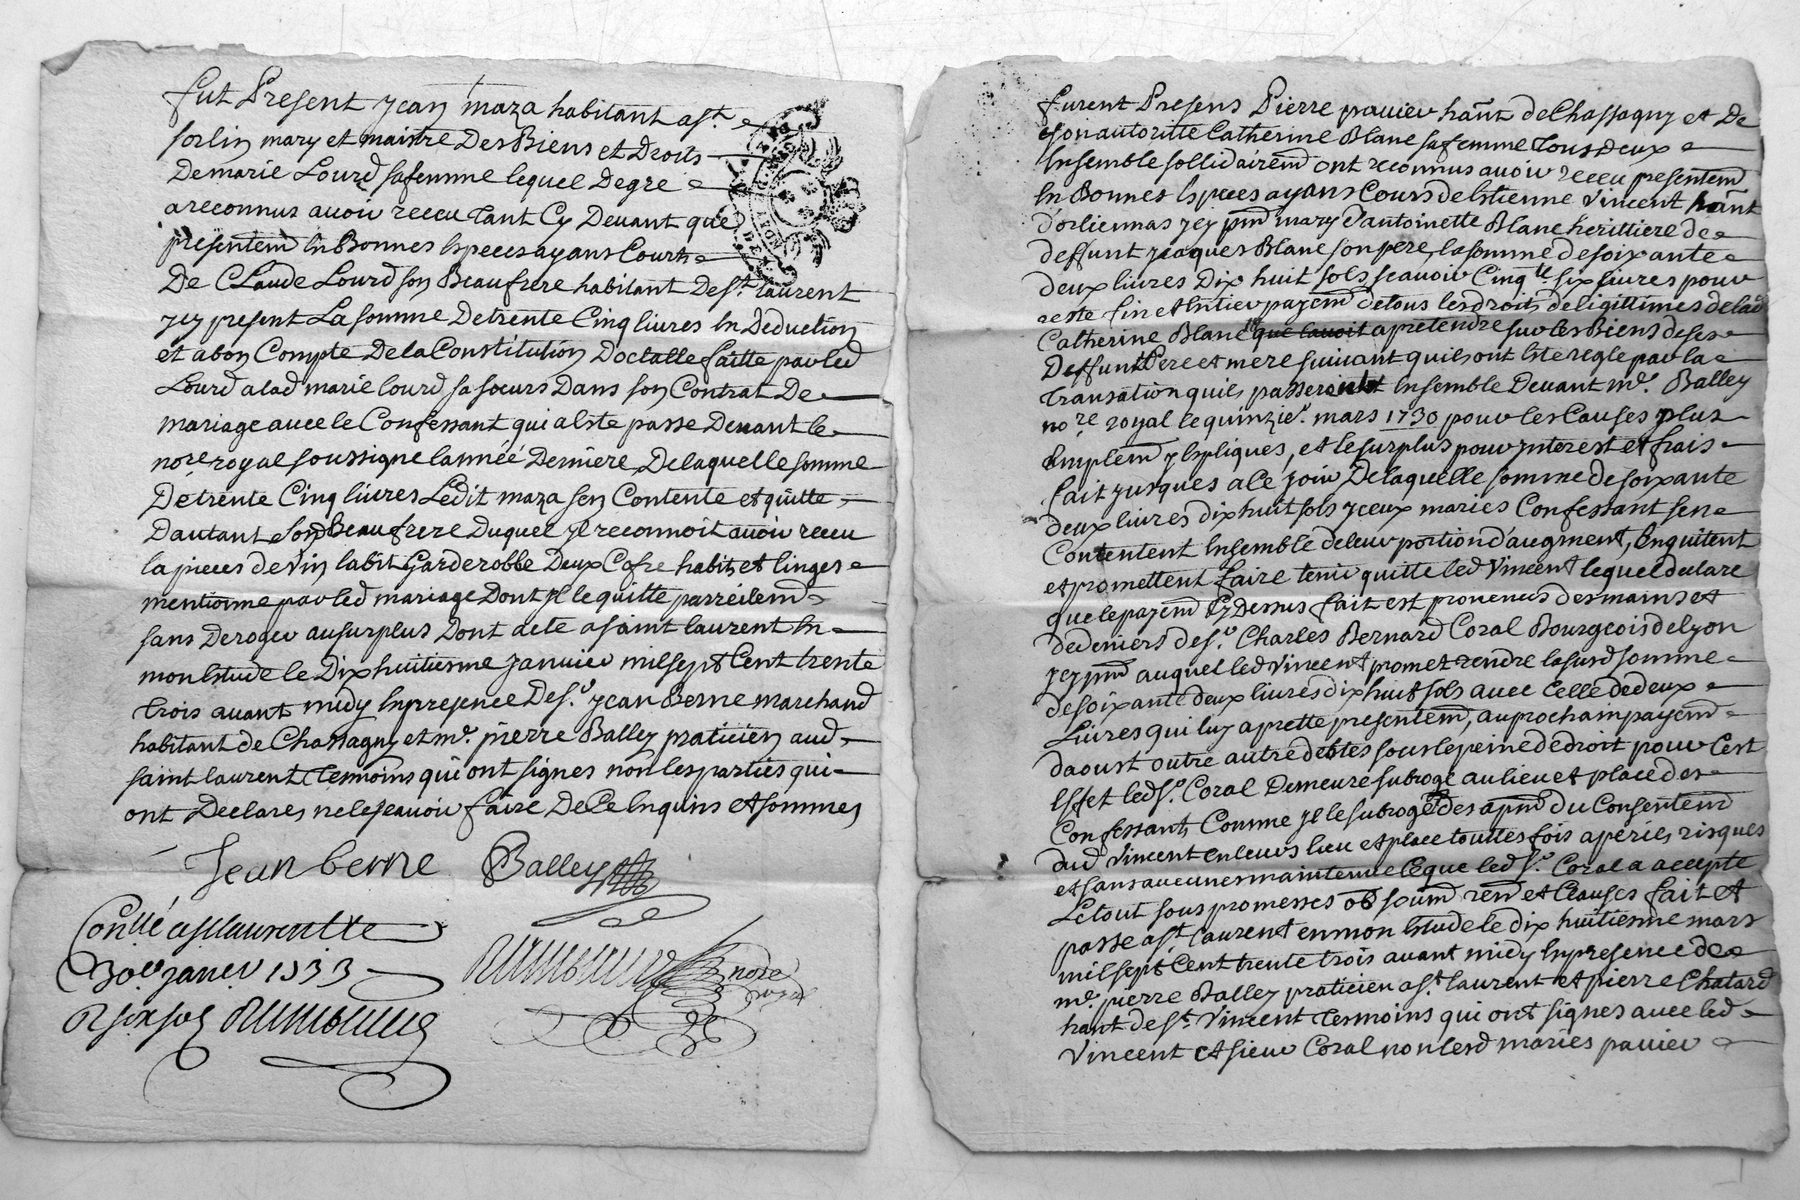 fut Present jean maza habitant a st.
sorlin mary et maistre Des Biens et Droits
De marie Lourd sa femme lequel De gre
a reconnus avoir receu tant Cy Devant que
presentem En Bonnes Especes ayans Cours
De Claude Lourd son Beaufrere habitant De st. laurent
jcy present La somme De trente Cinq livres En Deduction
et a bon Compte De la Constitution Doctalle faitte par led
Lourd a lad marie lourd sa soeurs Dans son Contrat De
mariage avec le Confessant qui a Este passe Devant le
nore royal soussigne lannéé Derniere De laquelle somme
De trente Cinq livres Ledit maza sen Contente et quitte
Dautant son Beaufrere Duquel jl reconnoit avoir receu
la pieces de vin labit Garderobbe Deux Cofre habits et linges
mentionne par led mariage Dont jl le quitte parreilem
sans Deroger au surplus Dont acte a saint laurent En
mon Estude le Dix huitienme janvier mil sept Cent trente
trois avant midy En presence De sr. jean Berne marchand
habitant de Chassagny et me. pierre Balley praticien aud
saint laurent tesmoins qui ont signes non les parties qui
ont Declares ne le scavoir faire De Ce Enquins et sommes
Jean berne Balley
Conlle a st laurent le
30er janer 1733
R six sols
nore
royal
furent Presens Pierre pavier hant de Chassagny et De
son autoritte Catherine Blanc sa femme tous Deux
Ensemble sollidairem ont reconnus avoir receu presentem
En Bonnes Especes ayans Cours de Estienne vincent hant
dorliennas jcy pnt mary d'antoinette Blanc herittiere de
deffunt jacques Blanc son pere, la somme de soixante
deux livres Dix huit sols scavoir Cinqte six livres pour
reste fin et Entier payem de tous les droits de ligittimes de lad
Catherine Blanc que lavoit a pretendre sur les Biens de ses
Deffunt Pere et mere suivant quils ont Este regle par la
transation quils passeront Ensemble Devant me. Balley
nore. royal le quinzie. mars 1730 pour les Causes plus
amplem y Expliques, et le surplus pour jnterest et frais
fait jusques a Ce jour De laquelle somme de soixante
deux livres dix huit sols jceux maries Confessant sen
Contentent Ensemble de leur portion d'augment, Enquittent
et promettent faire tenir quitte led vincent lequel declare
que le payem Cy Dessus fait est provenus des mains et
de deniers de sr. Charles Bernard Coral Bourgeois de lyon
jcy pnt auquel led vincent promet rendre la susd somme
de soixante deux livres dix huit sols avec Celle de deux
Livres qui luy a prette presentem, au prochain payem
daoust outre autre debtes sous le peine de droit pour Cest
Effet led sr. Coral Demeure subroge au lieu et place des
Confessants Comme jl le subroge des apnt du Consentem
dud vincent en leurs lieu et place touttes fois a peries risques
et sans aucunes maintenue Ce que led sr. Coral a accepte
Le tout sous promesses ob soum ren et Clauses fait et
passe a st. laurent en mon Estude le dix huitienme mars
mil sept Cent trente trois avant midy En presence de
me. pierre Balley praticien a st. laurent et pierre Chatard
hant de st. vincent tesmoins qui ont signes avec led
vincent et sieur Coral non lesd maries pavier